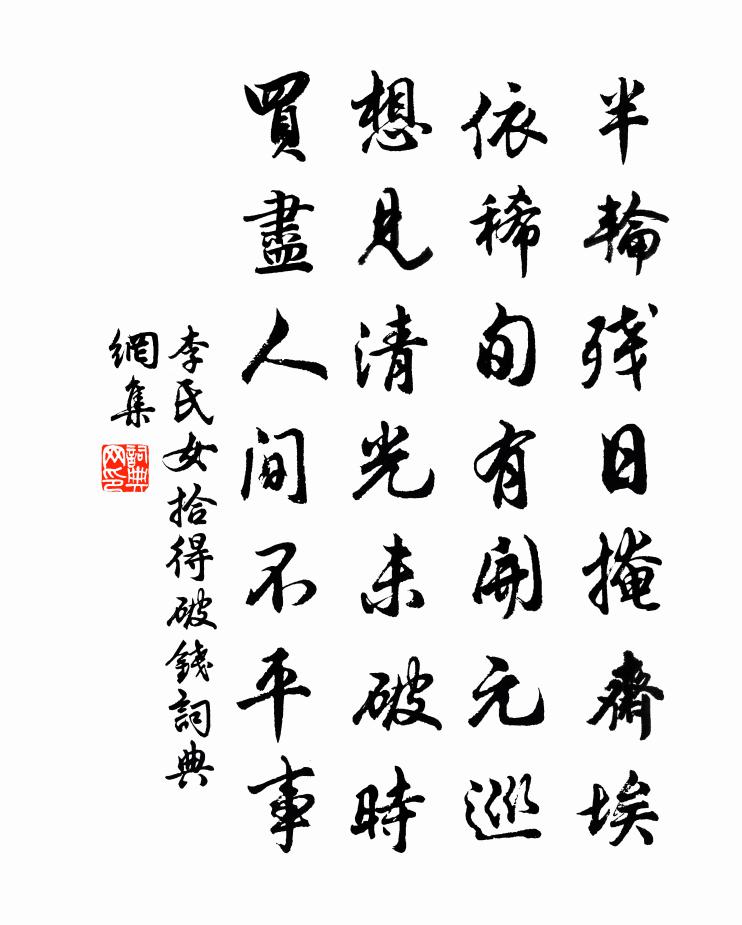 半輪残日掩齋埃
依稀旬有開元巡
想見清光未破時
買盡人间不平事
李氏女拾得破錢詞典
網集
詞典
网印